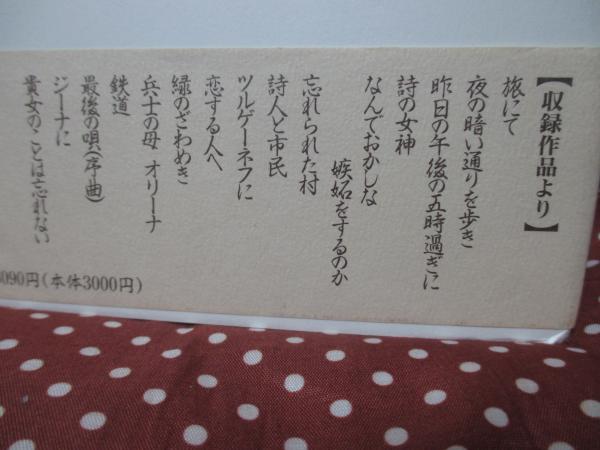 【収録作品より】
旅にて
夜の暗い通りを歩き
昨日の午後の五時過ぎに
詩の女神
なんでおかしな
嫉妬をするのか
忘れられた村
詩人と市民
ツルゲーネフに
恋する人へ
緑のざわめき
兵士の母 オリーナ
鉄道
最後の唄(序曲)
ジーナに
貴女のことは忘れない
090円(本体3000円)